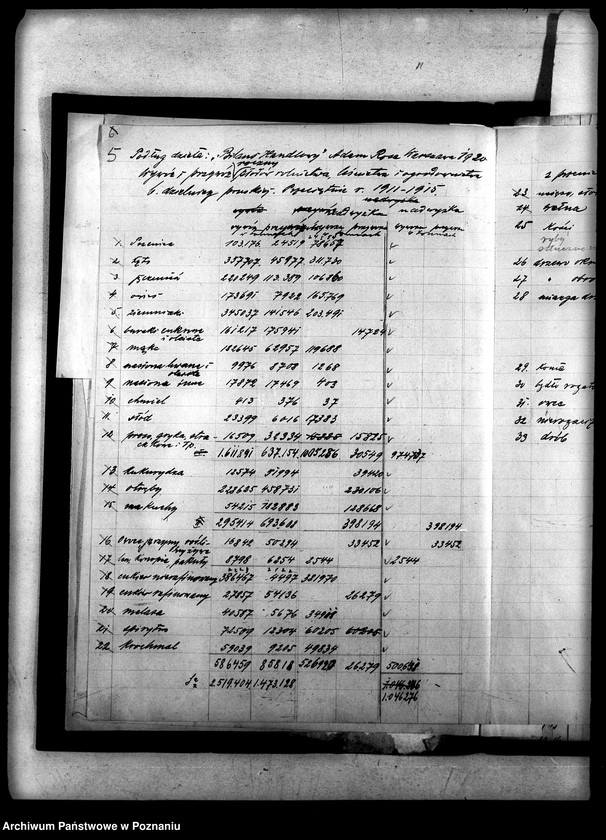 6
5 Podług dzieła: „Bilans Handlowy" Adam Rose Warszawa 1920
roczny
wywóz i przywóz płodów rolnictwa, leśnictwa i ogrodownictwa
b. dzielnicy pruskiej. Przeciętnie r. 1911–1915
nadwyżka
wywozu przywozu wywozu przywozu wywozu przywozu
w tonnach
1. Pszenica 103176 24519 78657
2. żyto 357707 45977 311730
3. jęczmień 220249 113.389 106860
4. owies 173691 7922 165769
5. ziemniaki 345037 141546 203.491
6. buraki cukrowe 161217 175941 14724
7. mąka 182645 62957 119688
8. nasiona lniane i oleiste 9976 8708 1268
9. nasiona inne 17872 17469 403
10. chmiel 413 376 37
11. słód 23399 6016 17383
12. proso, gryka, 16509 32334 15825
1.611891 637.154 1005286 30549 974737
13. kukurydza 12574 91994 39420
14. otręby 228625 458731 230106
15. makuchy 54215 182883 128668
295414 693608 398194 398194
16. 16842 50294 33452 33452
17. len, konopie, pakuły 8798 6254 2544 2544
18. cukier nierafinowany 386467 4497 381970
19. cukier rafinowany 27857 54136 26279
20. melasa 40587 5676 34911
21. spirytus 72509 12304 60205 60205
22. krochmal 59039 9205 49834
586459 85818 526920 26279 500641
2519.404 1.473.128 1.046276
23 mięso,
24. wełna
25 Kości
ryby
26 drzewo
27 "
28
29. konie
30 bydło
31. owce
32 nierogaciz
33 drób
Archiwum Państwowe w Poznaniu